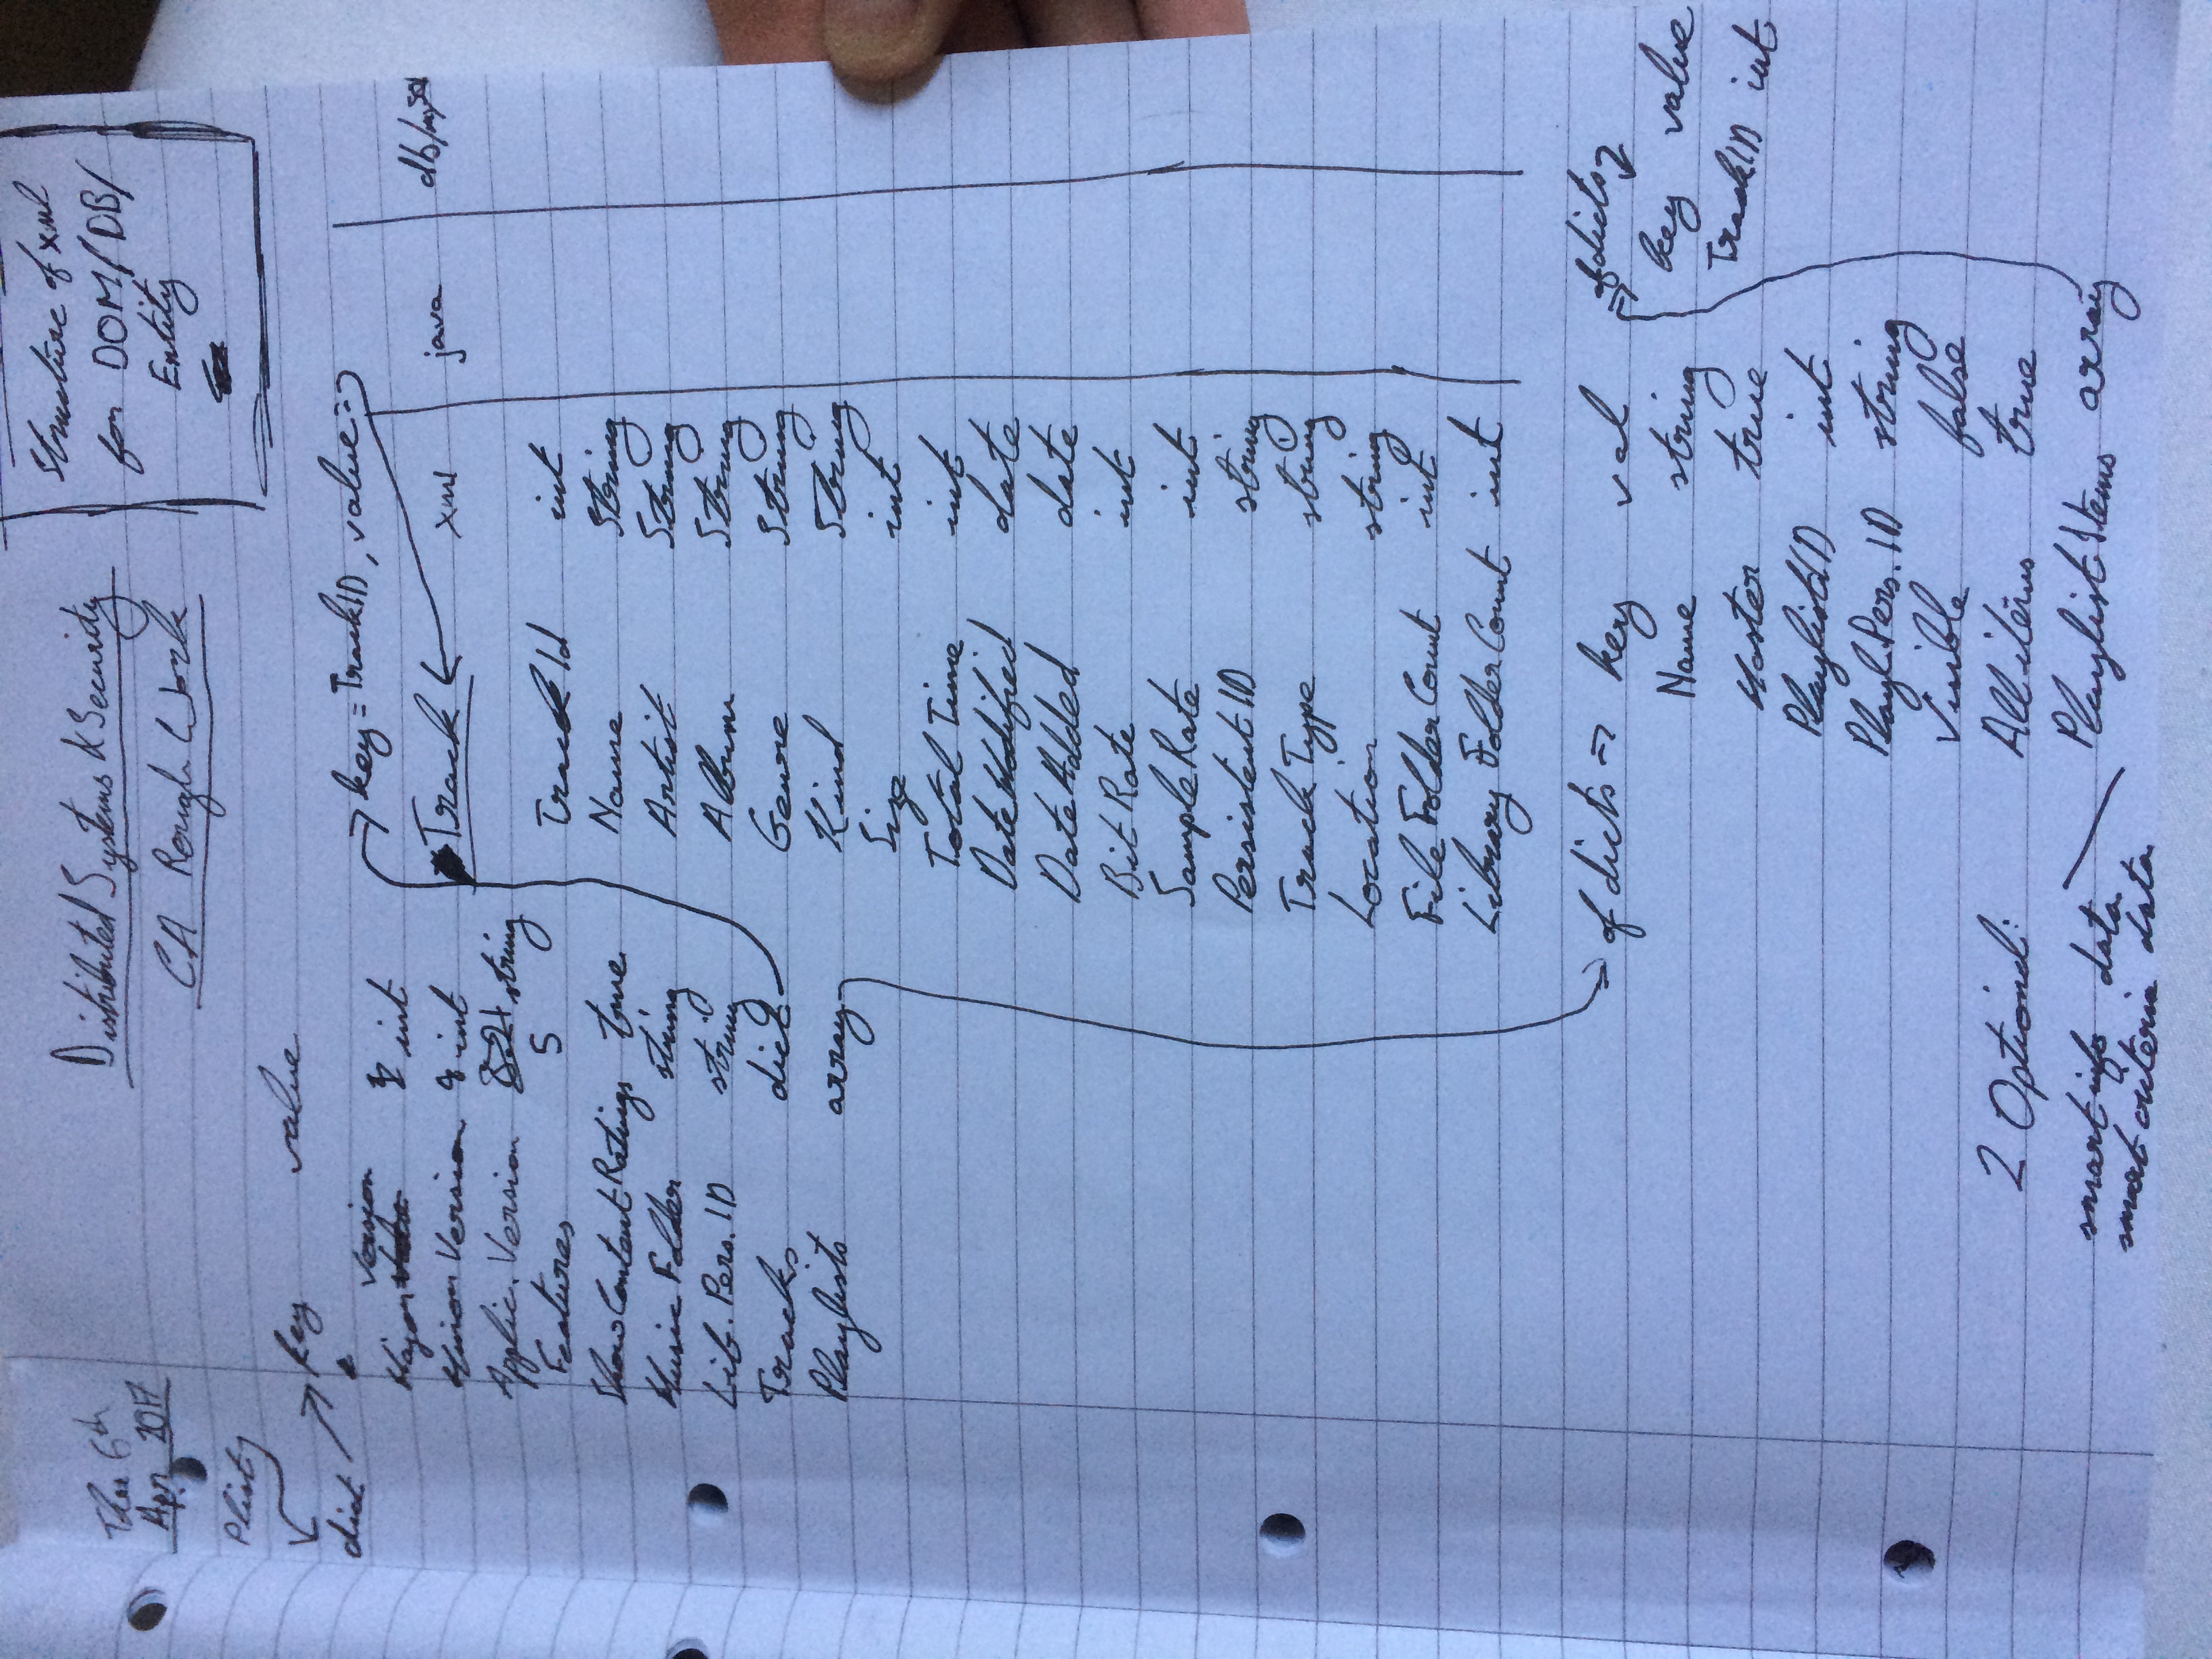 Thu 6th
Apr 2017
Distributed Systems & Security
CA Rough Work
Structure of xml
for DOM/DB/
Entity
Plist
dict
key value
Major version int
Minor Version int
Applic. Version string
Features 5
Show Content Ratings true
Music Folder string
Lib. Pers. ID string
Tracks dict
Playlists array
key = TrackID, value =>
Track xml java db/mySQL
Track Id int
Name String
Artist String
Album String
Genre String
Kind String
Size int
Total Time int
Date Modified date
Date Added date
Bit Rate int
Sample Rate int
Persistent ID string
Track Type string
Location string
File Folder Count int
Library Folder Count int
of dicts => key val
Name string
Master true
PlaylistID int
Playl.Pers. ID string
Visible false
All items true
Playlist Items array
of dicts
key value
TrackID int
2 Optional:
smart info data
smart criteria data